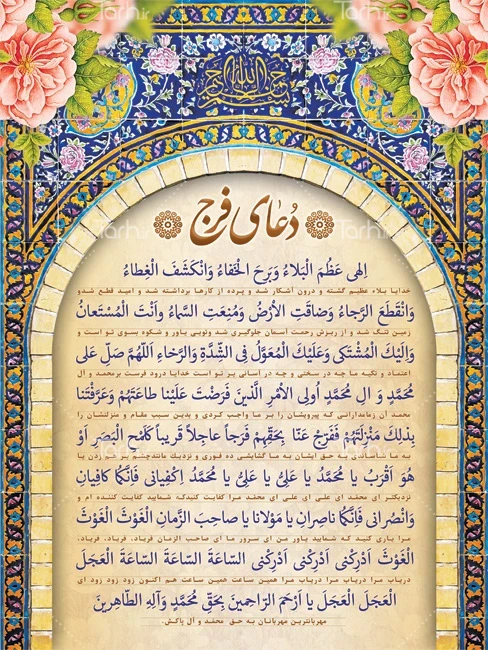 بسم الله الرحمن الرحیم
دعای فرج
اِلهی عَظُمَ الْبَلاءُ وَبَرِحَ الْخَفاءُ وَانْکَشَفَ الْغِطاءُ
خدایا بلاء عظیم گشته و درون آشکار شد و پرده از کارها برداشته شد و امید قطع شدو
وَانْقَطَعَ الرَّجاءُ وَضاقَتِ الْاَرْضُ وَمُنِعَتِ السَّماءُ وَاَنْتَ الْمُسْتَعانُ
زمین تنگ شد و از ریزش رحمت آسمان جلوگیری شد وتویی یاور و شکوه بسوی تو است و
وَاِلَیْکَ الْمُشْتَکی وَعَلَیْکَ الْمُعَوَّلُ فِی الشِّدَّةِ وَالرَّخاءِ اَللّهُمَّ صَلِّ عَلی
اعتماد و تکیه ما چه در سختی و چه در آسانی بر تو است خدایا درود فرست برمحمد و آل
مُحَمَّدٍ وَ الِ مُحَمَّدٍ اُولِی الْاَمْرِ الَّذینَ فَرَضْتَ عَلَیْنا طاعَتَهُمْ وَعَرَّفْتَنا
محمد آن زمامدارانی که پیرویشان را بر ما واجب کردی و بدین سبب مقام و منزلتشان را
بِذلِکَ مَنْزِلَتَهُمْ فَفَرِّجْ عَنّا بِحَقِّهِمْ فَرَجاً عاجِلاً قَریباً کَلَمْحِ الْبَصَرِ اَوْ
به ما شناساندی به حق ایشان به ما گشایشی ده فوری و نزدیک مانندچشم بر هم زدن یا
هُوَ اَقْرَبُ یا مُحَمَّدُ یا عَلِیُّ یا عَلِیُّ یا مُحَمَّدُ اِکْفِیانی فَاِنَّکُما کافِیانِ
نزدیکتر ای محمد ای علی ای علی ای محمد مرا کفایت کنیدکه شمایید کفایت کننده ام و
وَانْصُرانی فَاِنَّکُما ناصِرانِ یا مَوْلانا یا صاحِبَ الزَّمانِ الْغَوْثَ الْغَوْثَ
مرا یاری کنید که شمایید یاور من ای سرور ما ای صاحب الزمان فریاد، فریاد، فریاد،
الْغَوْثَ اَدْرِکْنی اَدْرِکْنی اَدْرِکْنی السّاعَةَ السّاعَةَ السّاعَةَ الْعَجَلَ
دریاب مرا دریاب مرا دریاب مرا همین ساعت همین ساعت هم اکنون زود زود زود ای
الْعَجَلَ الْعَجَلَ یا اَرْحَمَ الرّاحِمینَ بِحَقِّ مُحَمَّدٍ وَآلِهِ الطّاهِرینَ
مهربانترین مهربانان به حق محمد و آل پاکش.